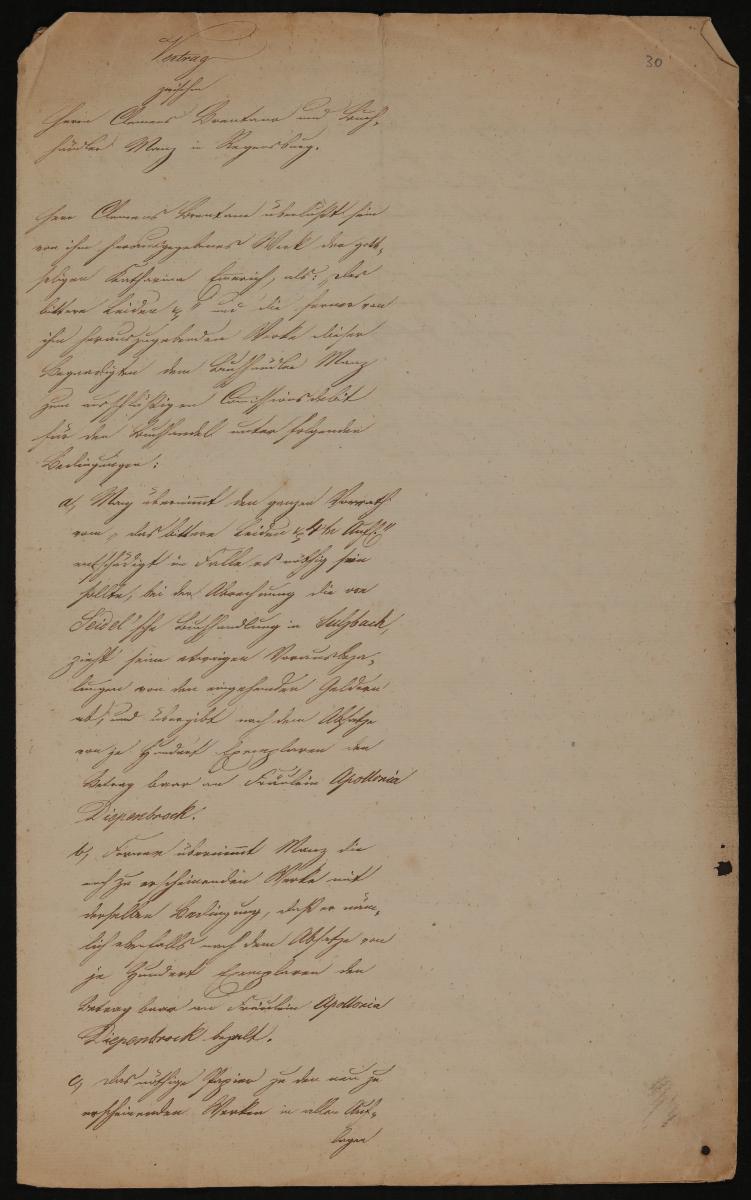 30
Vertrag
zwischen
Herrn Clemens Brentano und Buch-
händler Manz in Regensburg.
Herr Clemens Brentano überläßt sein
von ihm herausgegebenes Werk der gott-
seligen Katharina Emerich, als: „Das
bittere Leiden &" und die ferner von
ihm herauszugebenden Werke dieser
Begnadigten dem Buchhändler Manz
zum ausschlüßigen Commissionsdebit
für den Buchhandel unter folgenden
Bedingungen:
a, Manz übernimmt den ganzen Vorrath
vom „das bittere Leiden & 4te Aufl."
entschädigt im Falle es nöthig sein
sollte, bei der Abrechnung die von
Seidel'sche Buchhandlung in Sulzbach,
zieht seine etwaigen Vorausbeza-
lungen von den eingehenden Geldern
ab, und übergibt nach dem Absatze
von je Hundert Exemplaren den
Betrag baar an Fräulein Apollonia
Diepenbrock.
b, Ferner übernimmt Manz die
noch zu erscheinenden Werke mit
derselben Bedingung, daß er näm-
lich ebenfalls nach dem Absatze von
je Hundert Exemplaren den
Betrag baar an Fräulein Apollonia
Diepenbrock bezalt.
c, Das nöthige Papier zu den neu zu
erscheinenden Werken in allen Auf-
lagen